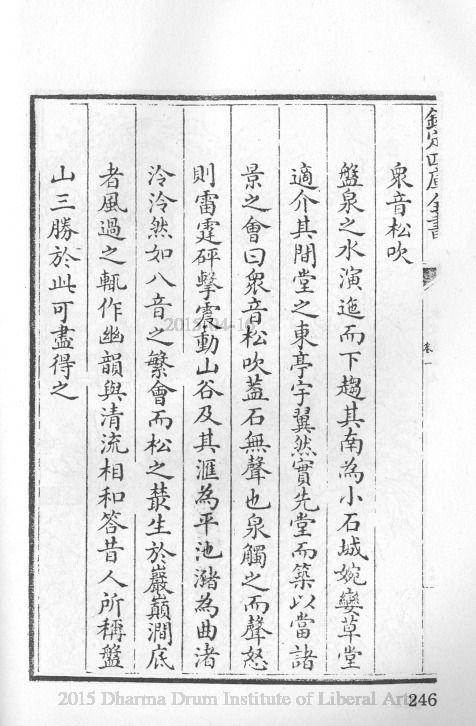 欽定四庫全書
卷一
衆音松吹
盤泉之水演迤而下趨其南為小石城婉孌草堂
適介其間堂之東亭宇翼然實先堂而築以當諸
景之會曰衆音松吹葢石無聲也泉觸之而聲怒
則雷霆砰擊震動山谷及其滙為平池瀦為曲渚
泠泠然如八音之繁會而松之叢生於巖巔澗底
者風過之輒作幽韻與清流相和答昔人所稱盤
山三勝於此可盡得之
246
2015 Dharma Drum Institute of Liberal Arts